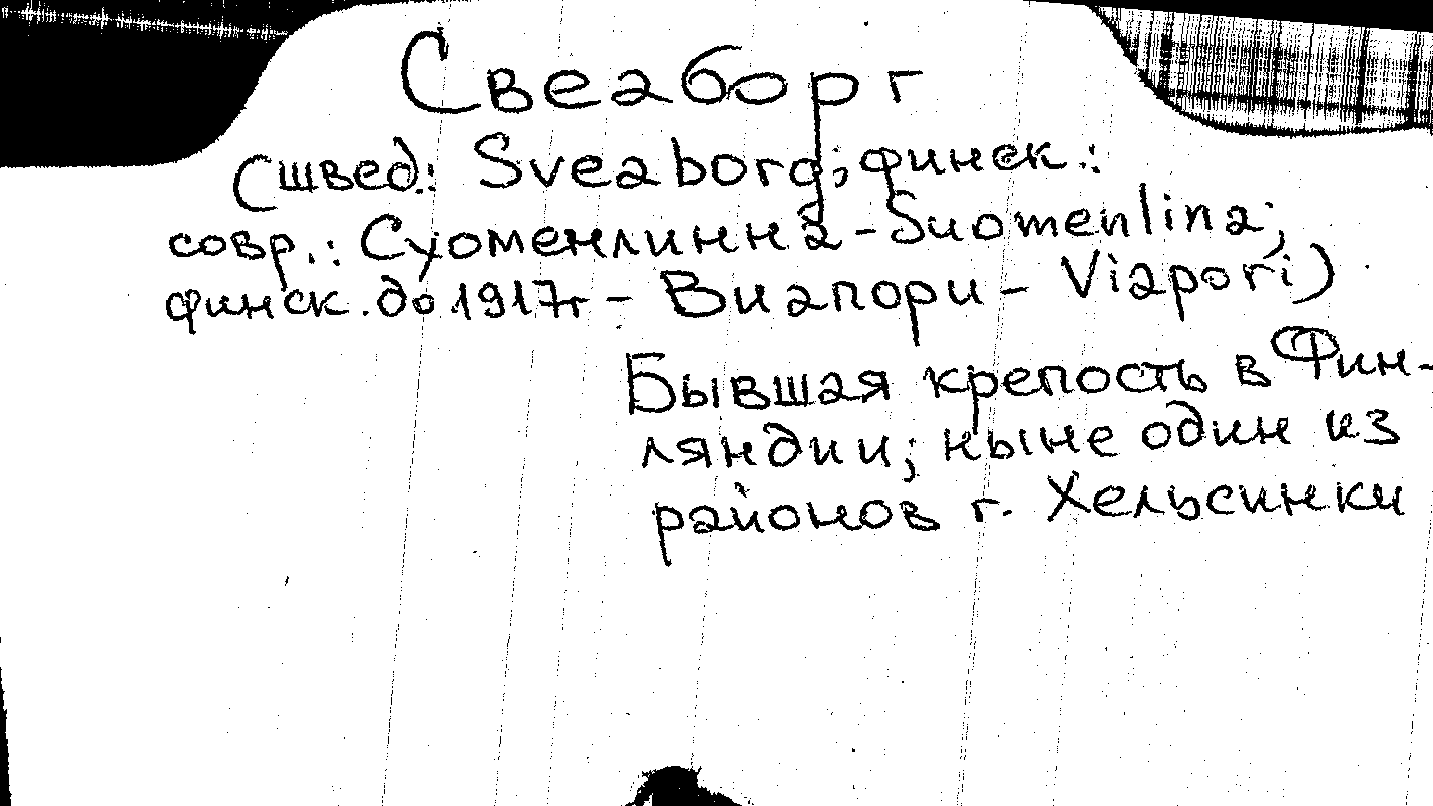 Свеаборг
(швед.: Sveaborg; финск.:
совр.: Суоменлинна - Suomenlina;
финск. до 1917г - Виапори - Viapori)
Бывшая крепость в Фин-
ляндии; ныне один из
районов г. Хельсинки